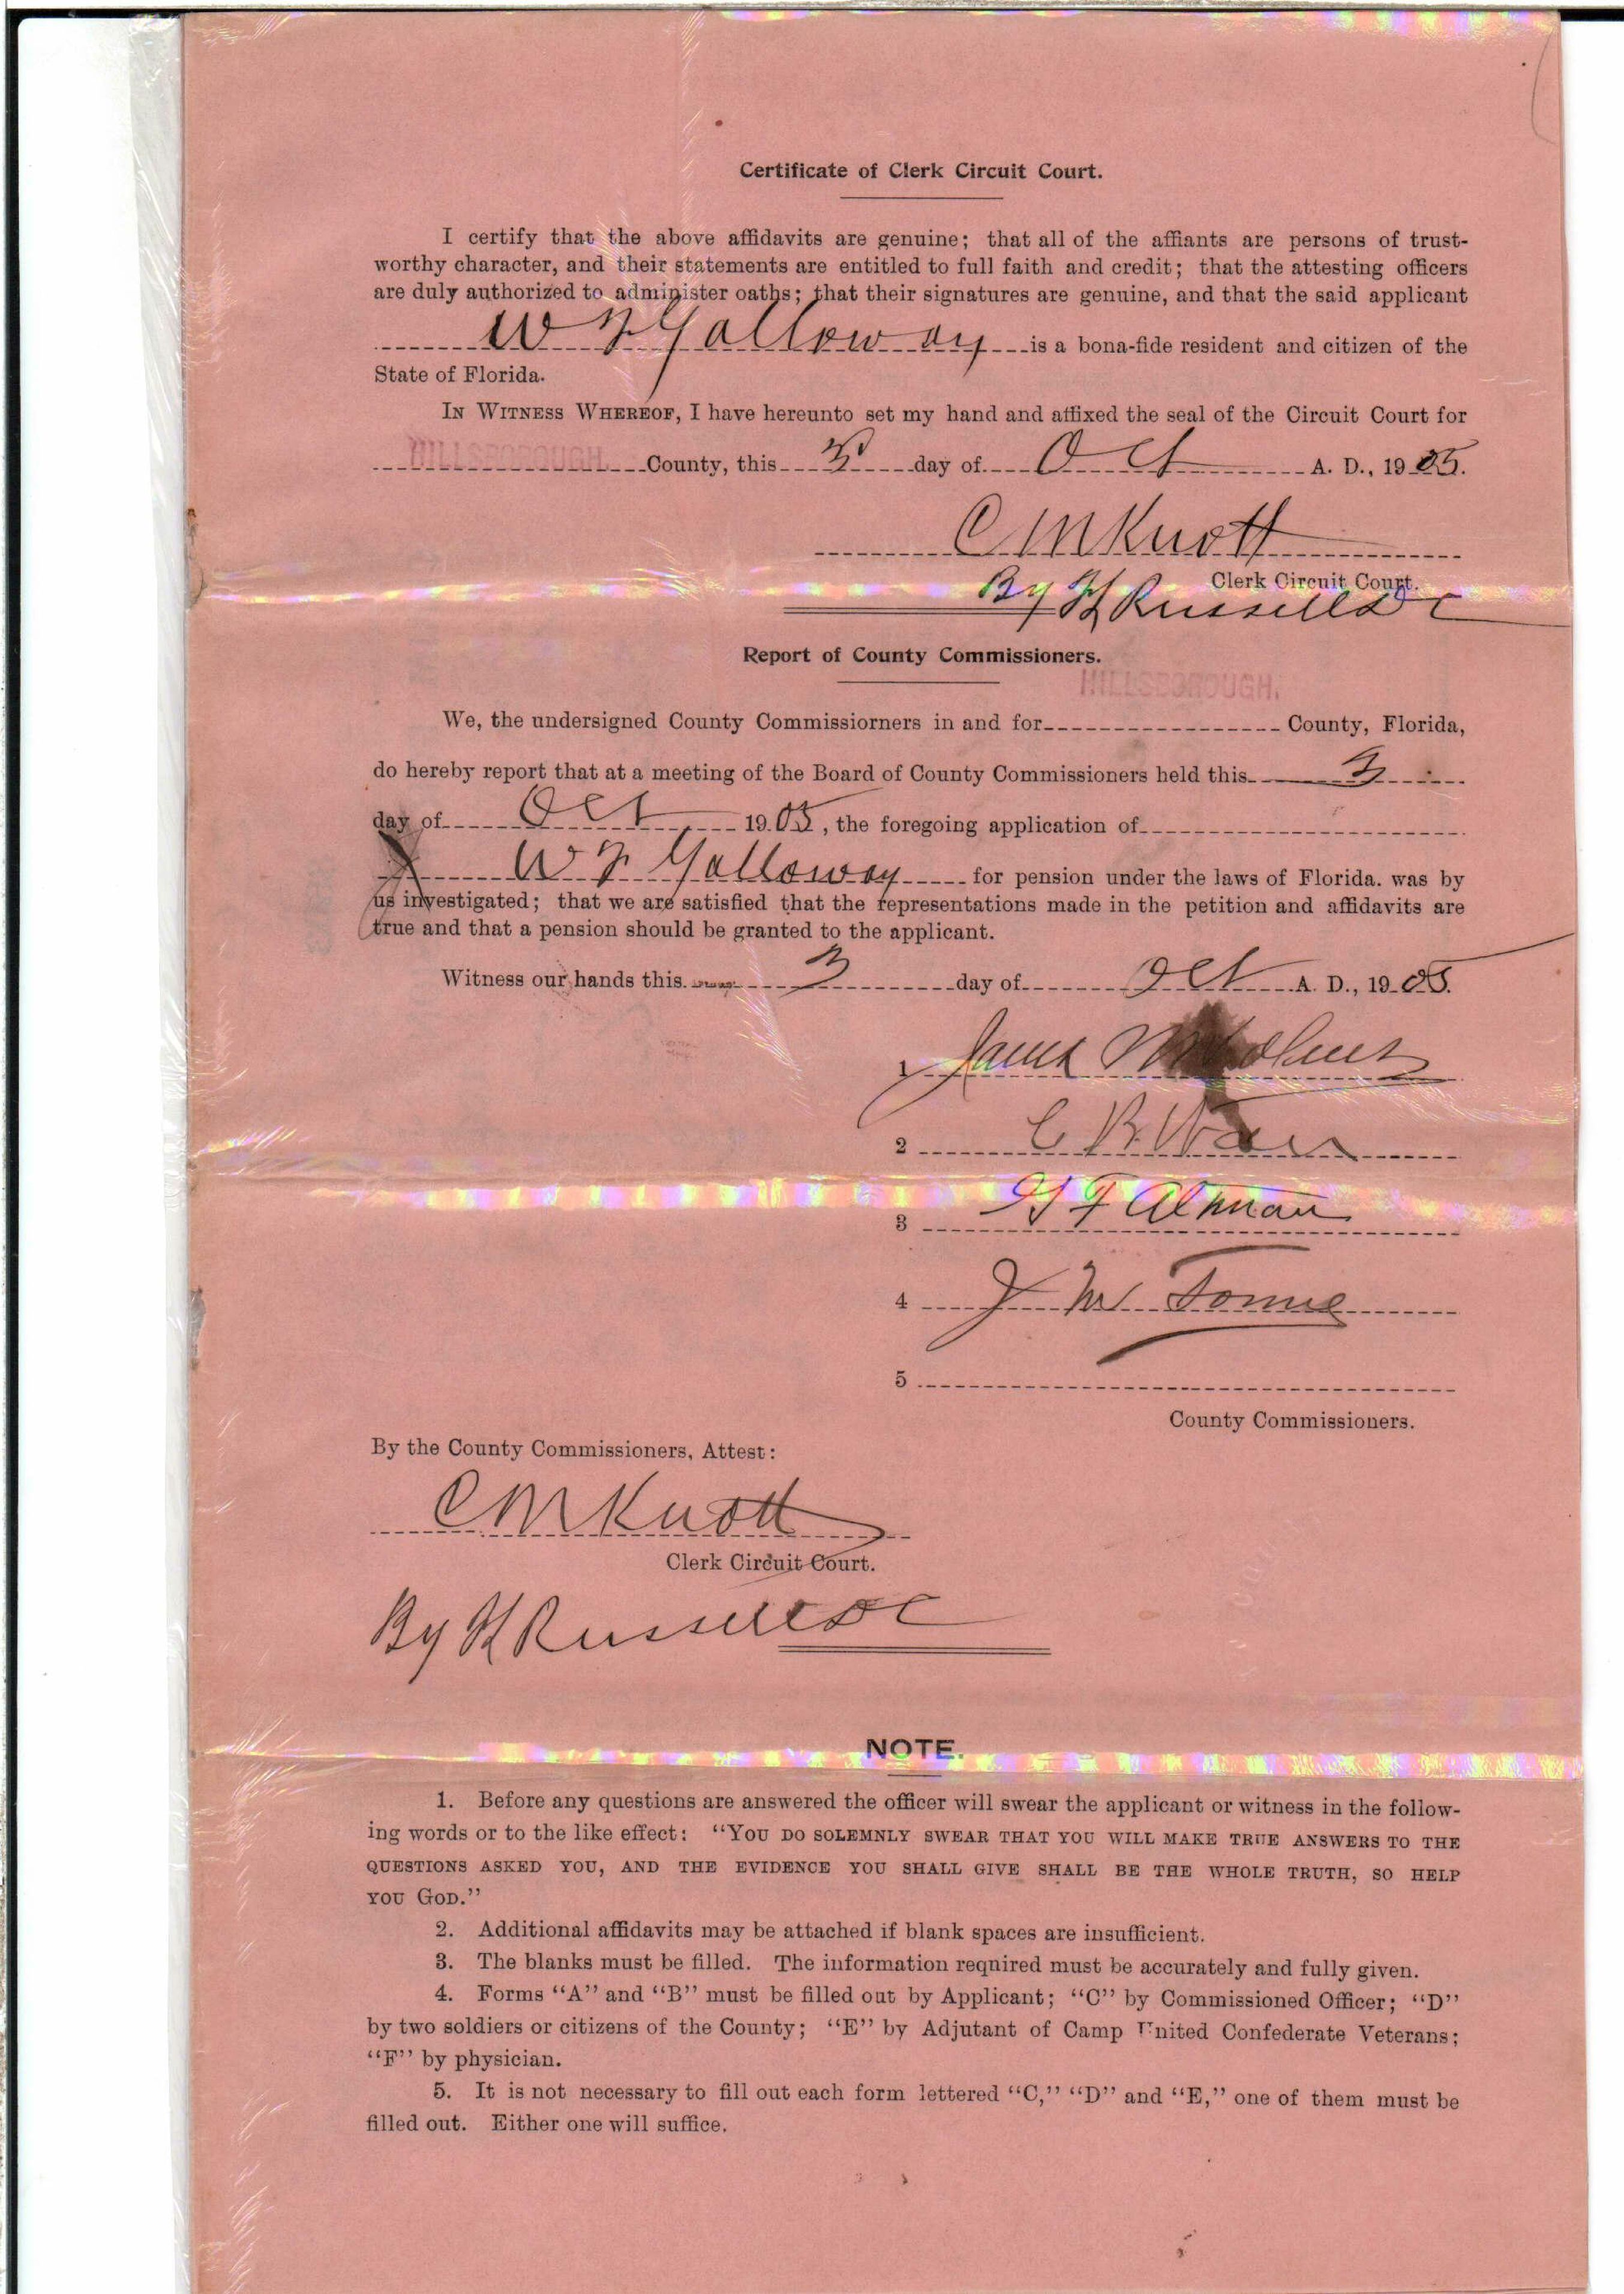 Certificate of Clerk Circuit Court.
I certify that the above affidavits are genuine; that all of the affiants are persons of trust-
worthy character, and their statements are entitled to full faith and credit; that the attesting officers
are duly authorized to administer oaths; that their signatures are genuine, and that the said applicant
W F Galloway is a bona-fide resident and citizen of the
State of Florida.
IN WITNESS WHEREOF, I have hereunto set my hand and affixed the seal of the Circuit Court for
HILLSBOROUGH. County, this 3 day of Oct A. D., 1905.
C M Knott
Clerk Circuit Court.
By H Russell DC
Report of County Commissioners.
HILLSBOROUGH.
We, the undersigned County Commissiorners in and for County, Florida,
do hereby report that at a meeting of the Board of County Commissioners held this 3
day of Oct 1905, the foregoing application of
W F Galloway for pension under the laws of Florida. was by
us investigated; that we are satisfied that the representations made in the petition and affidavits are
true and that a pension should be granted to the applicant.
Witness our hands this 3 day of Oct A. D., 1905.
1 James
2 C B
3 F Altman
4 J W
5
County Commissioners.
By the County Commissioners, Attest:
C M Knott
Clerk Circuit Court.
By H Russell DC
NOTE.
1. Before any questions are answered the officer will swear the applicant or witness in the follow-
ing words or to the like effect: "YOU DO SOLEMNLY SWEAR THAT YOU WILL MAKE TRUE ANSWERS TO THE
QUESTIONS ASKED YOU, AND THE EVIDENCE YOU SHALL GIVE SHALL BE THE WHOLE TRUTH, SO HELP
YOU GOD."
2. Additional affidavits may be attached if blank spaces are insufficient.
3. The blanks must be filled. The information required must be accurately and fully given.
4. Forms "A" and "B" must be filled out by Applicant; "C" by Commissioned Officer; "D"
by two soldiers or citizens of the County; "E" by Adjutant of Camp United Confederate Veterans;
"F" by physician.
5. It is not necessary to fill out each form lettered "C," "D" and "E," one of them must be
filled out. Either one will suffice.